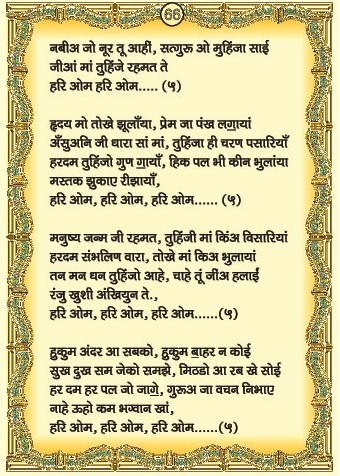 66
नबीअ जो नूर तू आहीं, सत्गुरू ओ मुहिंजा साई
जीआं मां तुहिंजे रहमत ते
हरि ओम हरि ओम..... (५)
हृदय मो तोखे झूलाँया, प्रेम जा पंख लगा॒यां
अँसुअनि जी धारा सां मां, तुहिंजा ही चरण पसारियाँ
हरदम तुहिंजो गुण गा॒याँ, हिक पल भी कीन भुलांया
मस्तक झुकाए रीझायाँ,
हरि ओम, हरि ओम, हरि ओम...... (५)
मनुष्य जन्म जी रहमत, तुहिंजी मां किंअ विसारियां
हरदम संभलिण वारा, तोखे मां किअ भुलायां
तन मन धन तुहिंजो आहे, चाहे तूं जीअं हलाईं
रंजु खुशी अंखियुन ते.,
हरि ओम, हरि ओम, हरि ओम......(५)
हुकुम अंदर आ सबको, हुकुम बा॒हर न कोई
सुख दुख सम जेको समझे, मिठडो आ रब खे सोई
हर दम हर पल जो जागे॒, गुरूअ जा वचन निभाए
नाहे ऊहो कम भग्वान खां,
हरि ओम, हरि ओम, हरि ओम......(५)